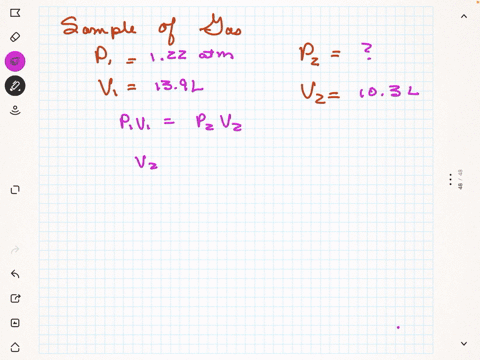 Sample of Gas
P₁ = 1.22 atm P₂ = ?
V₁ = 13.9L V₂ = 10.3 L
P₁V₁ = P₂ V₂
V₂